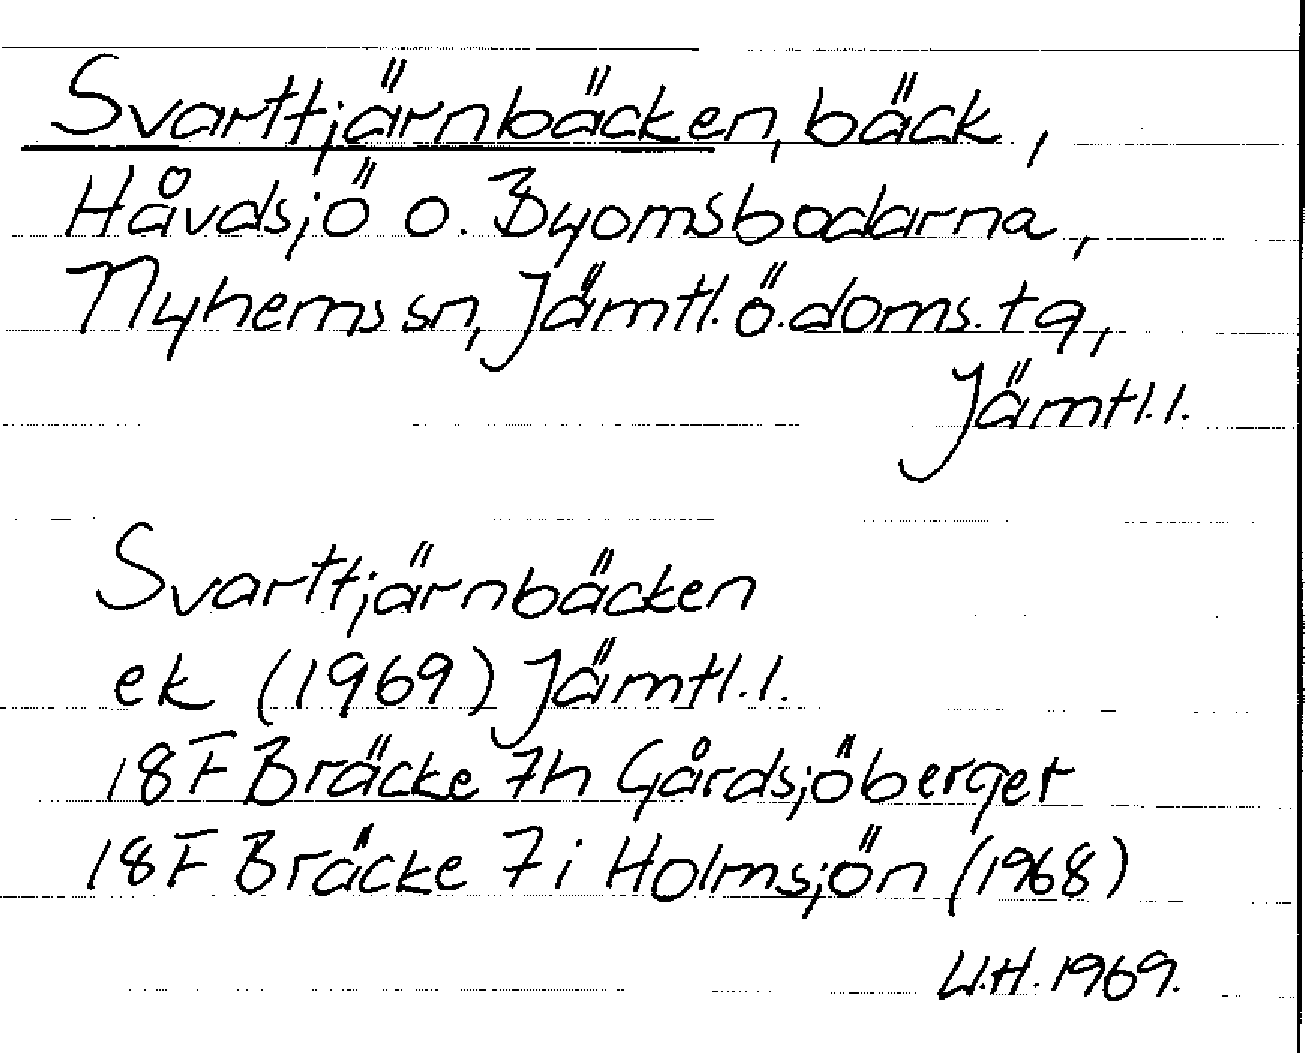 Svarttjärnbäcken, bäck,
Håvdsjö o. Byomsbodarna,
Nyhems sn, Jämtl. ö. doms. tg,
Jämtl. l.
Svarttjärnbäcken
ek (1969) Jämtl. l.
18F Bräcke 7h Gårdsjöberget
18F Bräcke 7i Holmsjön (1968)
U.H. 1969.